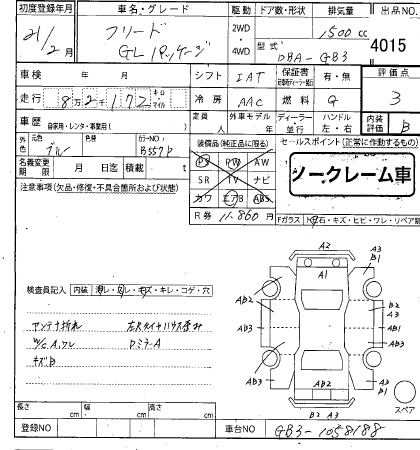 初度登録年月 車名・グレード 駆動 ドア数・形状 排気量 出品NO.
21/2月 フリード GL 2WD ・ 4WD 型式 1500 cc DBA-GB3 4015
車検 年 月 シフト IAT 保証書 有・無 評価点
走行 8万2千172 キロ マイル 冷房 AAC 燃料 G 3
車歴 自家用・レンタ・事業用( ) 定員 人 外車モデル 年 ディーラー 並行 ハンドル 左・右 内装評価 B
外色 元色 ブルー 色替 カラーNO. B557P 装備品(純正品に限る) セールスポイント(正常に作動するもの)
PS PW AW
名義変更期限 月 日迄 積載 t SR TV ナビ ノークレーム車
注意事項(欠品・修復・不具合箇所および状態) カワ エアB ABS
R券 11,860 円 Fガラス 石・キズ・ヒビ・ワレ・リペア
A2
A3
B1
AB2 A1 A3 B1
検査員記入 内装 キレ・コゲ・穴
AB3 AB2 B2 A3
アンテナ折れ AB3 AB2 AB3
ワレ DミラーA
キズB AB3 A3 B1
B2 A3
スペア
長さ cm 幅 cm 高さ cm
登録NO 車台NO GB3-1058188